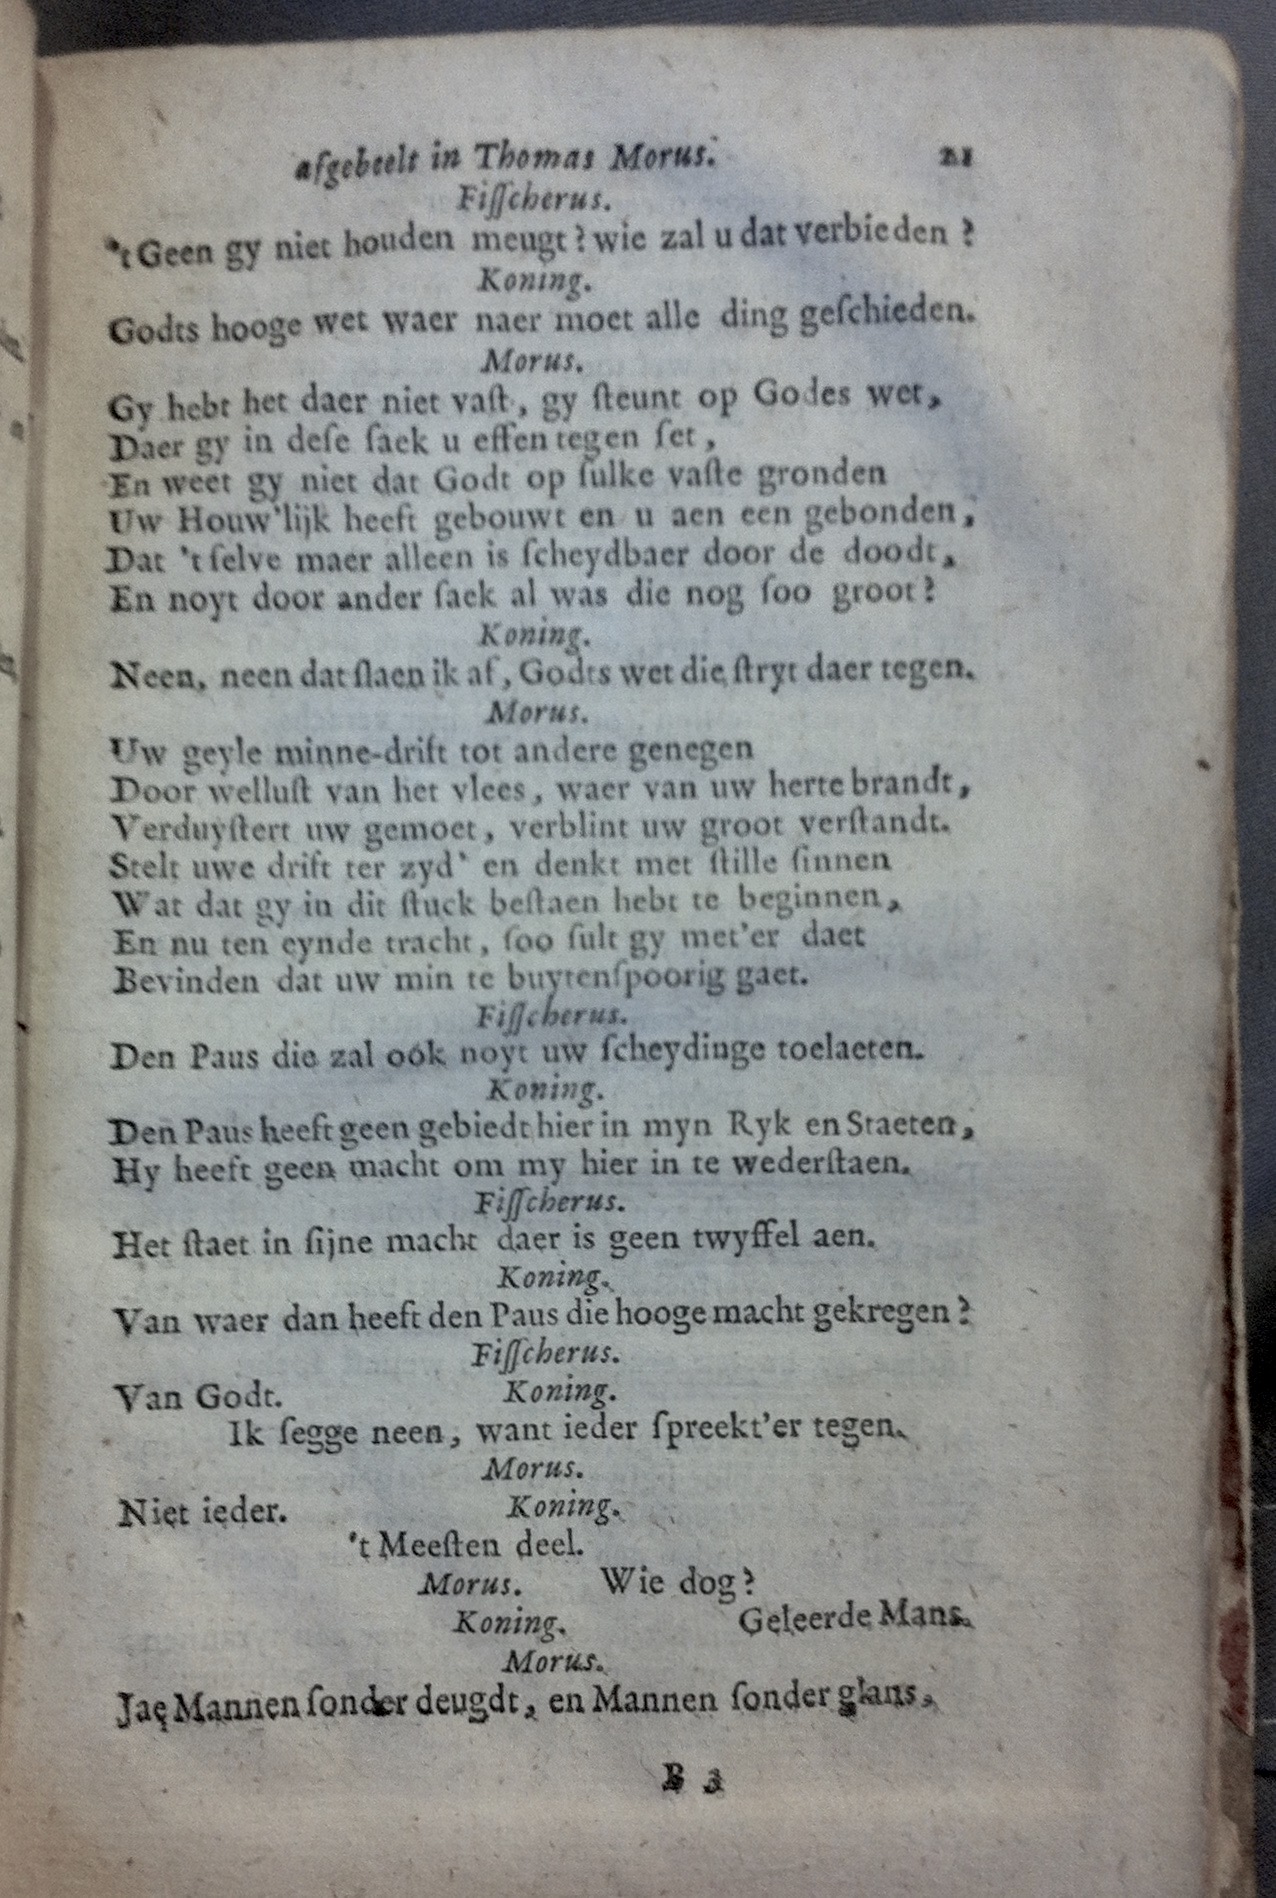 afgebeelt in Thomas Morus. 21
Fiſſcherus.
't Geen gy niet houden meugt? wie zal u dat verbieden?
Koning.
Godts hooge wet waer naer moet alle ding geſchieden.
Morus.
Gy hebt het daer niet vaſt, gy ſteunt op Godes wet,
Daer gy in deſe ſaek u effen tegen ſet,
En weet gy niet dat Godt op ſulke vaſte gronden
Uw Houw'lijk heeft gebouwt en u aen een gebonden,
Dat 't ſelve maer alleen is ſcheydbaer door de doodt,
En noyt door ander ſaek al was die nog ſoo groot?
Koning.
Neen, neen dat ſlaen ik af, Godts wet die ſtryt daer tegen.
Morus.
Uw geyle minne-drift tot andere genegen
Door welluſt van het vlees, waer van uw herte brandt,
Verduyſtert uw gemoet, verblint uw groot verſtandt.
Stelt uwe drift ter zyd' en denkt met ſtille ſinnen
Wat dat gy in dit ſtuck beſtaen hebt te beginnen,
En nu ten eynde tracht, ſoo ſult gy met'er daet
Bevinden dat uw min te buytenſpoorig gaet.
Fiſſcherus.
Den Paus die zal oók noyt uw ſcheydinge toelaeten.
Koning.
Den Paus heeft geen gebiedt hier in myn Ryk en Staeten,
Hy heeft geen macht om my hier in te wederſtaen.
Fiſſcherus.
Het ſtaet in ſijne macht daer is geen twyffel aen.
Koning.
Van waer dan heeft den Paus die hooge macht gekregen?
Fiſſcherus.
Van Godt. Koning.
Ik ſegge neen, want ieder ſpreekt'er tegen.
Morus.
Niet ieder. Koning.
't Meeſten deel.
Morus. Wie dog?
Koning. Geleerde Mans.
Morus.
Jae Mannen ſonder deugdt, en Mannen ſonder glans,
B 3